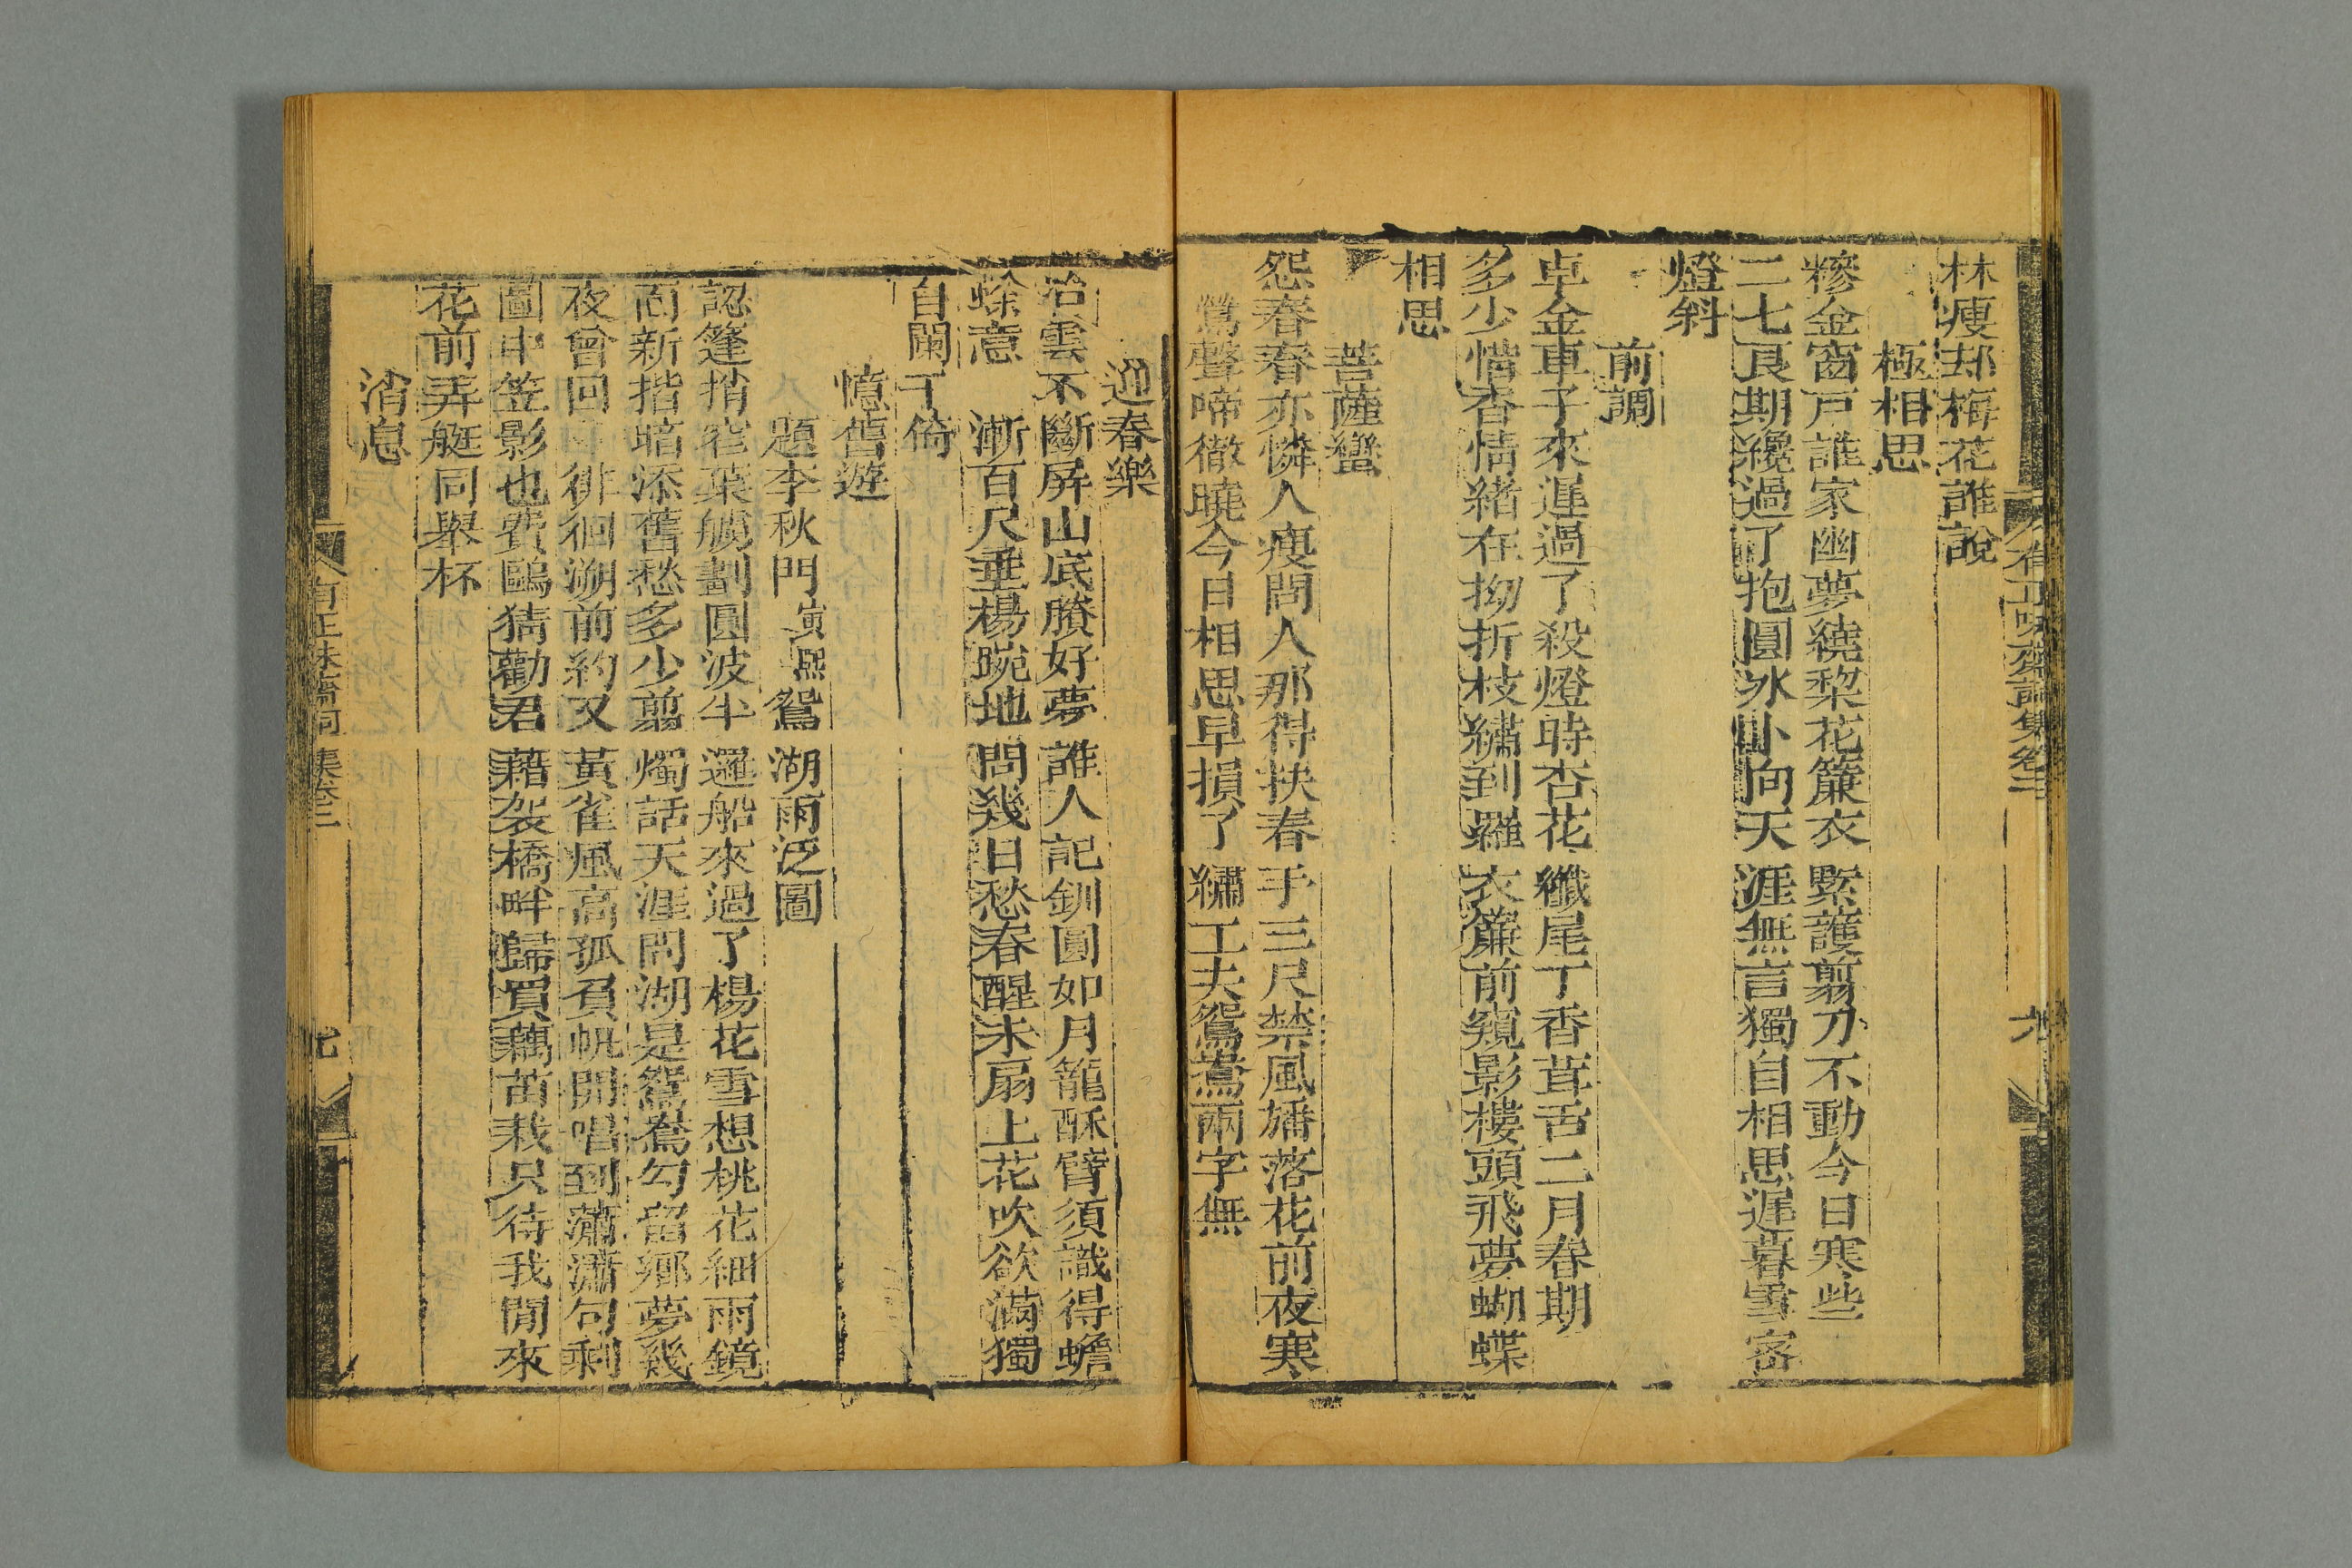 林瘦却梅花誰說
極相思
糝金窗戸誰家幽夢繞棃花簾衣緊護翦刀不動今日寒些
二七良期纔過了抱圓冰小向天涯無言獨自相思遲暮雪密
燈斜
前調
卓金車子來遲過了殺燈時杏花纖尾丁香葺舌二月春期
多少惜香情緒在拗折枝繡到羅衣簾前窺影樓頭飛夢蝴蝶
相思
菩薩蠻
怨春春亦憐人瘦問人那得扶春手三尺禁風旛落花前夜寒
鶯聲啼徹曉今日相思早損了繡工夫鴛鴦兩字無
有正味齋詞集卷二
迎春樂
冶雲不斷屏山底賸好夢誰人記釧圓如月籠酥臂須識得蟾
蜍意　漸百尺垂楊踠地問幾日愁春醒未扇上花吹欲滿獨
自闌干倚
憶舊遊
題李秋門寅熙鴛湖雨泛圖
認篷捎窄葉艤劃圓波半邏船來過了楊花雪想桃花細雨鏡
面新揩暗添舊愁多少翦燭話天涯問湖是鴛鴦勾留鄉夢幾
夜曾回　徘徊溯前約又黃雀風高孤負帆開唱到瀟瀟句剩
圖中笠影也費鷗猜勸君藉袈橋畔歸買藕苗栽只待我閒來
花前弄艇同舉杯
消息
有正味齋詞集卷二